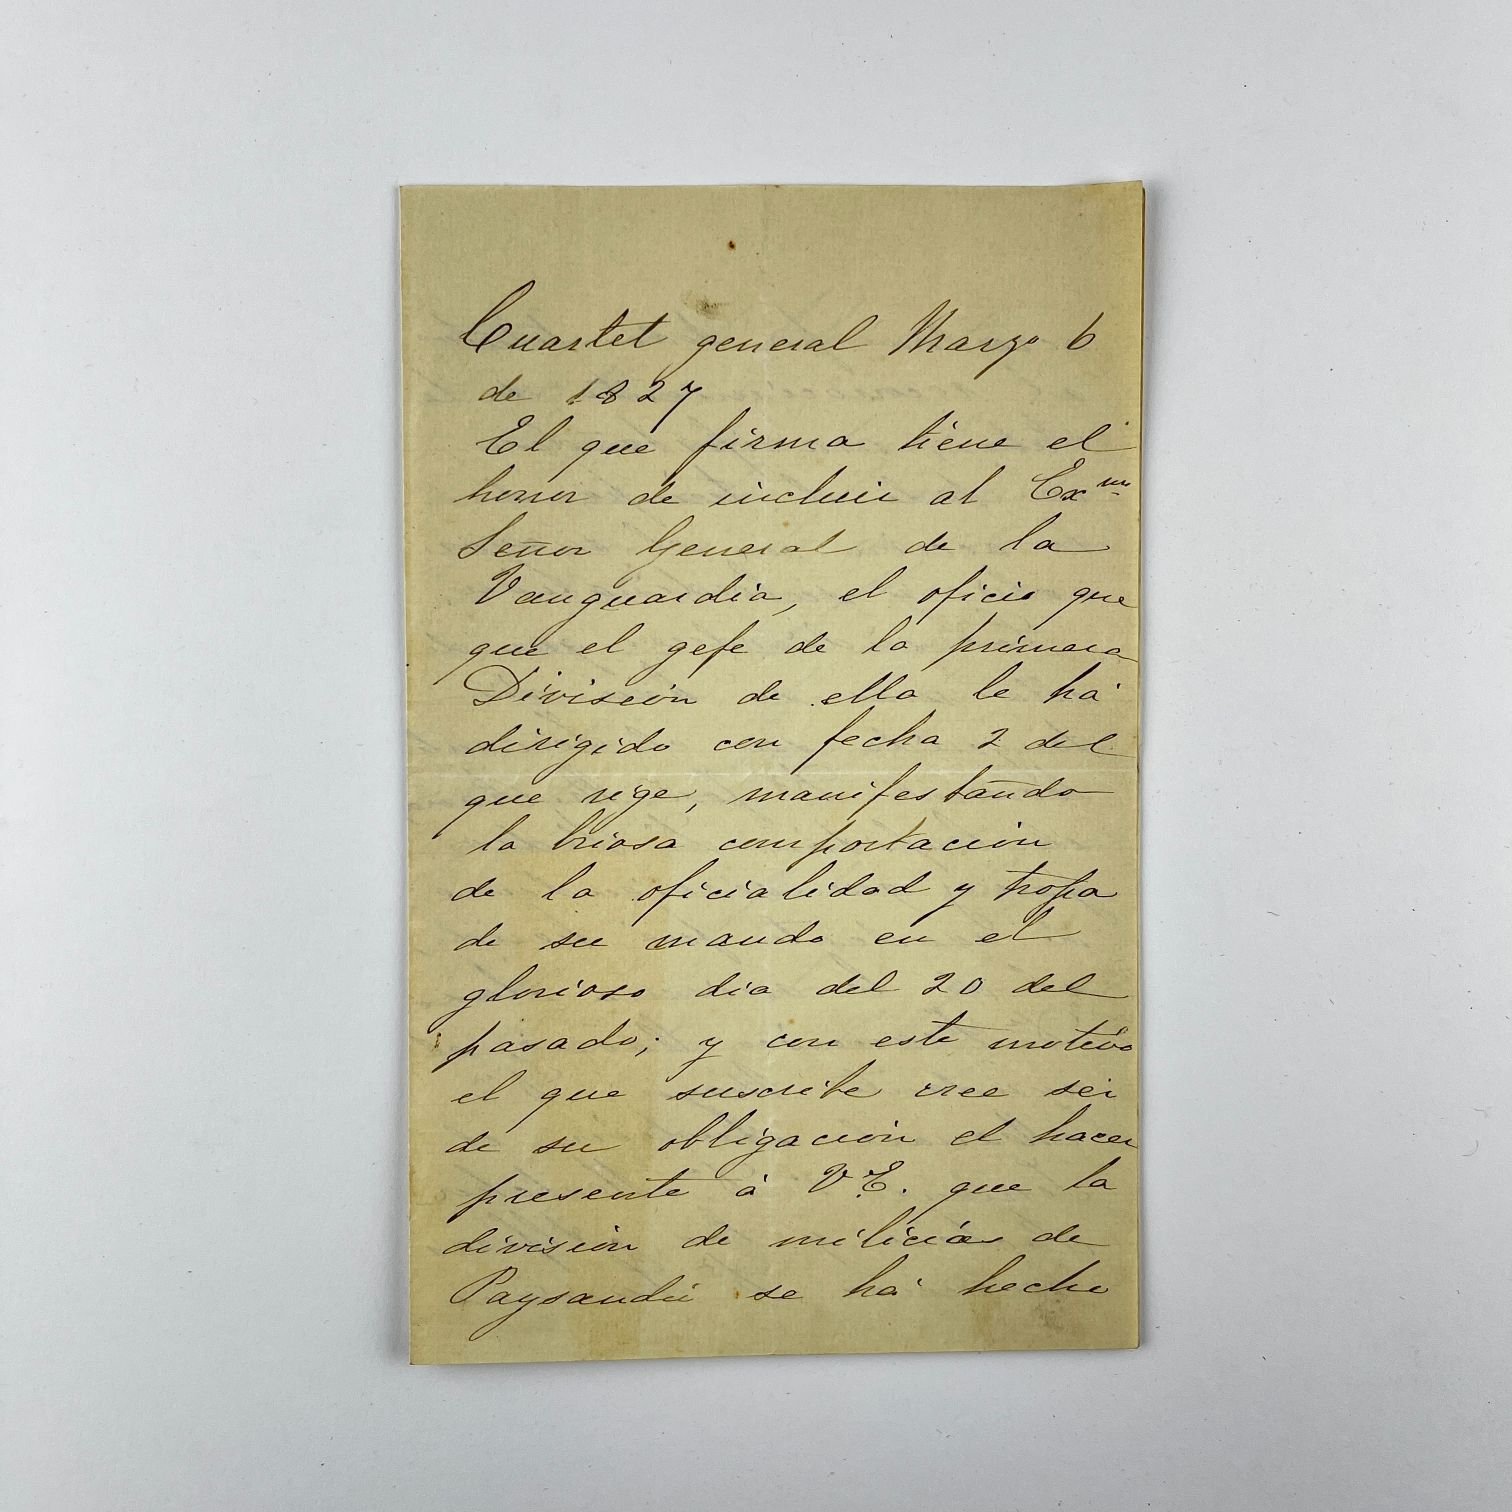 Cuartel general Marzo 6
de 1827
El que firma tiene el
honor de incluir al Exmo
Señor General de la
Vanguardia, el oficio que
que el gefe de la primera
División de ella le há
dirigido con fecha 2 del
que rige, manifestando
la briosa comportación
de la oficialidad y tropa
de su mando en el
glorioso dia del 20 del
pasado; y con este motivo
el que suscribe cree ser
de su obligación el hacer
presente á V.E. que la
división de milicias de
Paysandú se há hecho